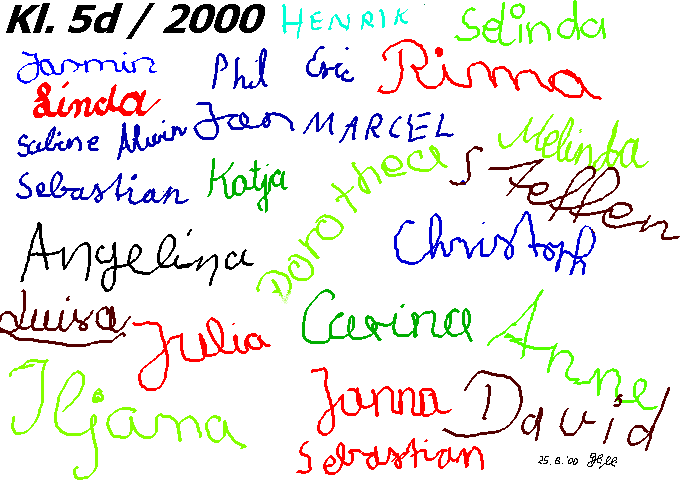 Kl. 5d / 2000 HENRIK Selinda
Jasmin Phil Eric Rima
Linda
Sabine Alwin Jan MARCEL Melinda
Sebastian Katja Dorothea Steffen
Angelina Christoph
Luisa Julia Carina Anne
Iljana Janna David
Sebastian 25.8.'00